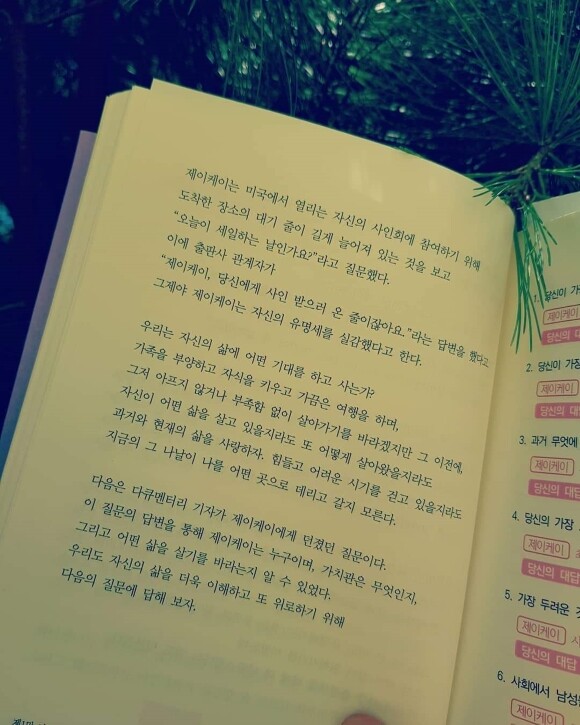 제이케이는 미국에서 열리는 자신의 사인회에 참여하기 위해
도착한 장소의 대기 줄이 길게 늘어져 있는 것을 보고
“오늘이 세일하는 날인가요?”라고 질문했다.
이에 출판사 관계자가
“제이케이, 당신에게 사인 받으러 온 줄이잖아요.”라는 답변을 했다고
그제야 제이케이는 자신의 유명세를 실감했다고 한다.
우리는 자신의 삶에 어떤 기대를 하고 사는가?
가족을 부양하고 자식을 키우고 가끔은 여행을 하며,
그저 아프지 않거나 부족함 없이 살아가기를 바라겠지만 그 이전에,
자신이 어떤 삶을 살고 있을지라도 또 어떻게 살아왔을지라도
과거와 현재의 삶을 사랑하자. 힘들고 어려운 시기를 걷고 있을지라도
지금의 그 나날이 나를 어떤 곳으로 데리고 갈지 모른다.
다음은 다큐멘터리 기자가 제이케이에게 던졌던 질문이다.
이 질문의 답변을 통해 제이케이는 누구이며, 가치관은 무엇인지,
그리고 어떤 삶을 살기를 바라는지 알 수 있었다.
우리도 자신의 삶을 더욱 이해하고 또 위로하기 위해
다음의 질문에 답해 보자.
1. 당신이 가
제이케이
당신의 대
2. 당신이 가장
제이케이
당신의 대
3. 과거 무엇에
제이케이
당신의 대답
4. 당신의 가장
제이케이
당신의 대답
5. 가장 두려운 것
제이케이
당신의 대답
6. 사회에서 남성
제이케이